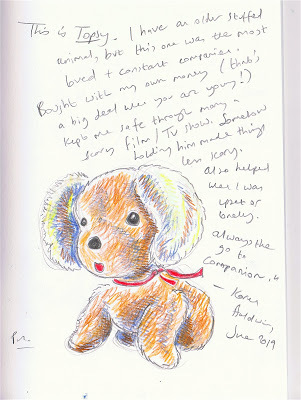 This is Topsy. I have an older stuffed
animal, but this one was the most
loved + constant companion.
Bought with my own money (that's
a big deal when you are young!)
kept me safe through many a
scary film / TV show. Somehow
holding him made things
less scary.
Also helped
when I was
upset or
lonely.
Always the
go to
companion."
— Karen
June 2019